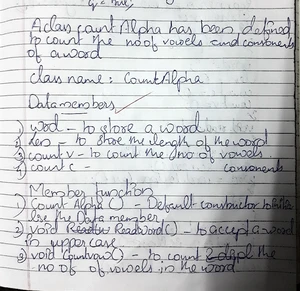 A class count Alpha has been defined
to count the no of vowels and consonents
of a word
class name : CountAlpha
Data members
1) word - to store a word
2) len - to store the length of the word
3) count v - to count the no of vowels
4) count c - consonents
Member function
1) Count Alpha () - Default constructor to
the Data member
2) void ReadWord() - to accept a word
in uppercase
3) void - to count the
no of of vowels in the word